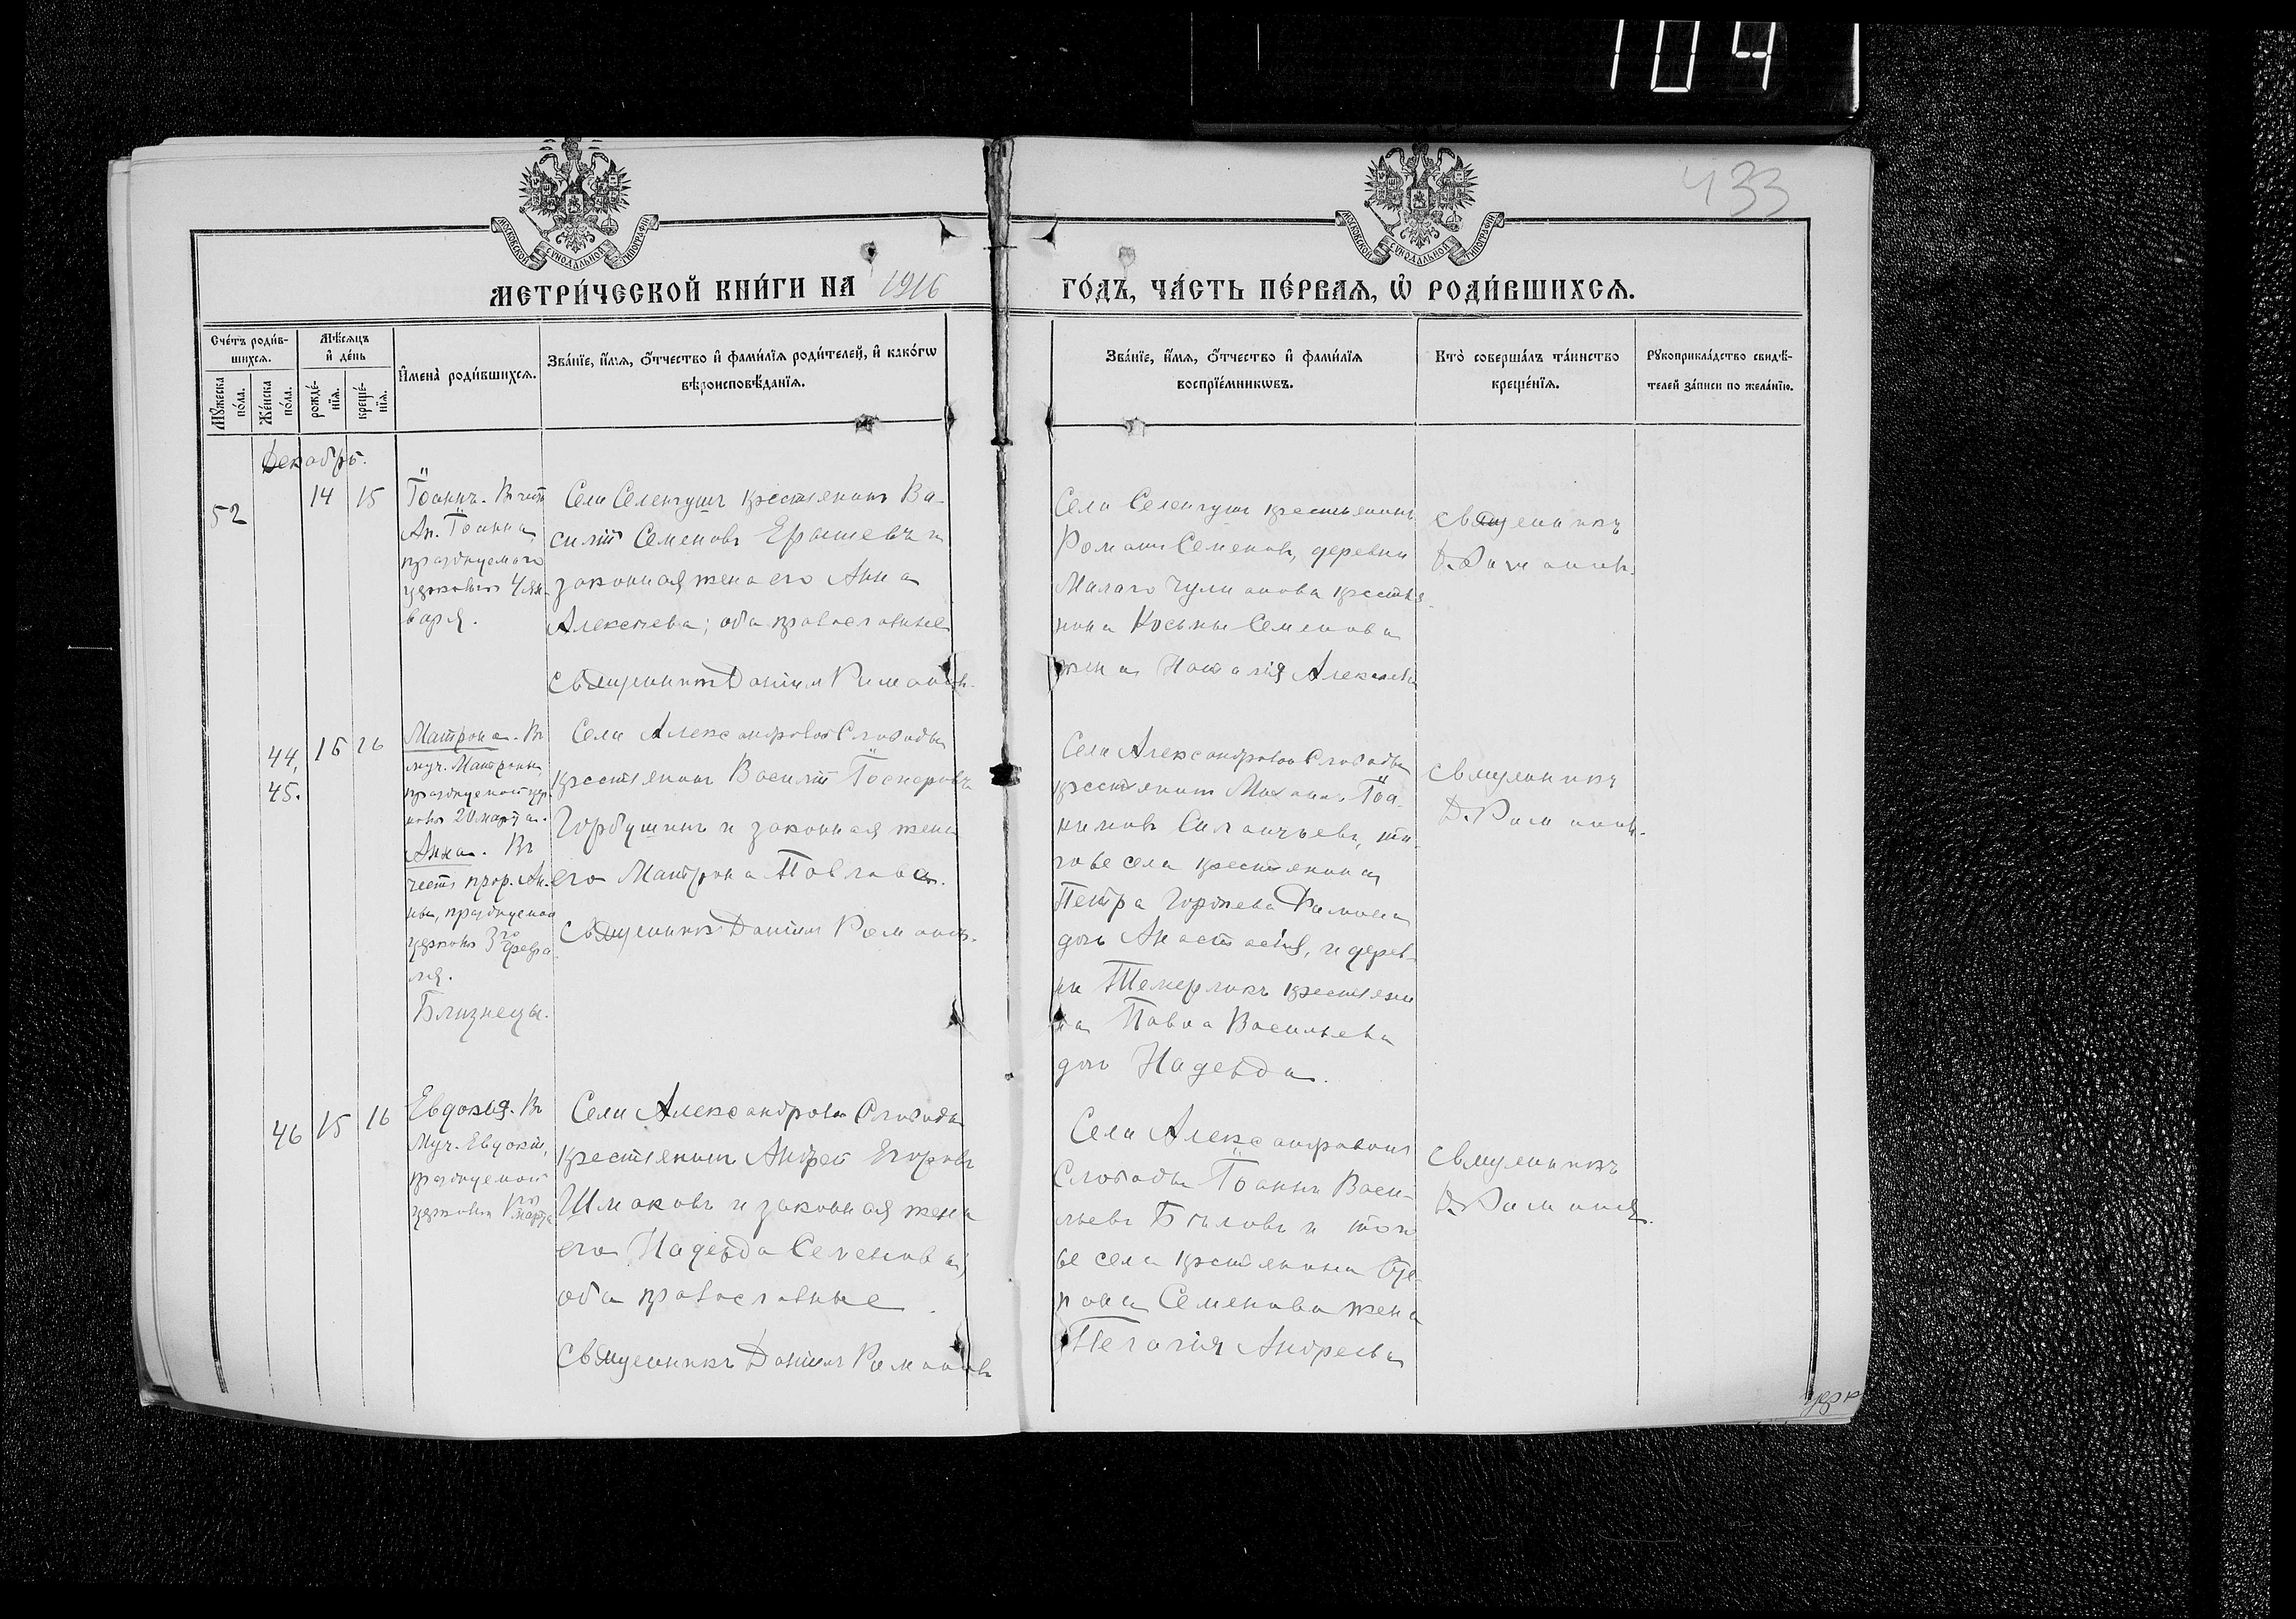 104
433
МОСКОВСКОЙ СУНОДАЛЬНОЙ ТИПОГРАФІИ
МОСКОВСКОЙ СУНОДАЛЬНОЙ ТИПОГРАФІИ
МЕТРИ́ЧЕСКОЙ КНИ́ГИ НА 1916
ГО́ДЪ, ЧА́СТЬ ПЕ́РВАЯ, Ѡ РОДИ́ВШИХСЯ.
Сче́тъ роди́в-
шихся.
Мѣ́сяцъ
и де́нь
Мꙋ́жеска
по́ла.
Же́нска
по́ла.
рожде́-
нїя.
креще́-
нїя.
Имена̀ роди́вшихся.
Зва́нїе, и́мя, ѻ́тчество и фами́лїя роди́телей, и како́гѡ
вѣроисповѣ́данїя.
Зва́нїе, и́мя, ѻ́тчество и фами́лїя
воспрїе́мникѡвъ.
Кто̀ соверша́лъ та́инство
креще́нїя.
Рꙋкоприкла́дство свидѣ́-
телей за́писи по жела́нїю.
Декабрь.
52
14
15
Іоаннъ. Въ честь
Ап. Іоанна,
празднуемаго
церковью 4 ян-
варя.
Села Селенгушъ крестьянинъ Ва-
силій Семеновъ Ерышевъ и
законная жена его Анна
Алексѣева; оба православные
Священникъ Даніилъ Романовъ.
Села Селенгушъ крестьянинъ
Романъ Семеновъ, деревни
Малаго Чулпанова крестья-
нина Косьмы Семенова
жена Наталія Алексѣева
Священникъ
Д. Романовъ.
44,
45.
15
16
Матрона. Въ
муч. Матроны,
празднуемой цер-
ковью 20 марта.
Анна. Въ
честь прор. Ан-
ны, празднуемой
церковью 3го февра-
ля.
Близнецы.
Села Александровой Слободы
крестьянинъ Василій
Горбушинъ и законная жена
его Матрона Павлова.
Священникъ Даніилъ Романовъ.
Села Александровой Слободы
крестьянинъ Михаилъ Іоа-
кимовъ Силантьевъ, то-
гоже села крестьянина
Петра Гордѣева
дочь Анастасія, и дерев-
ни Темерликъ крестьяни-
на Павла Васильева
дочь Надежда.
Священникъ
Д. Романовъ.
46
15
16
Евдокія. Въ
Муч. Евдокіи,
празднуемой
церковью 1го марта
Села Александровой Слободы
крестьянинъ Андрей Егоровъ
Шмаковъ и законная жена
его Надежда Семенова,
оба православные.
Священникъ Даніилъ Романовъ
Села Александровой
Слободы Іоаннъ Васи-
льевъ Бѣловъ и того
же села крестьянина Сте-
пана Семенова жена
Пелагія Андреева
Священникъ
Д. Романовъ.